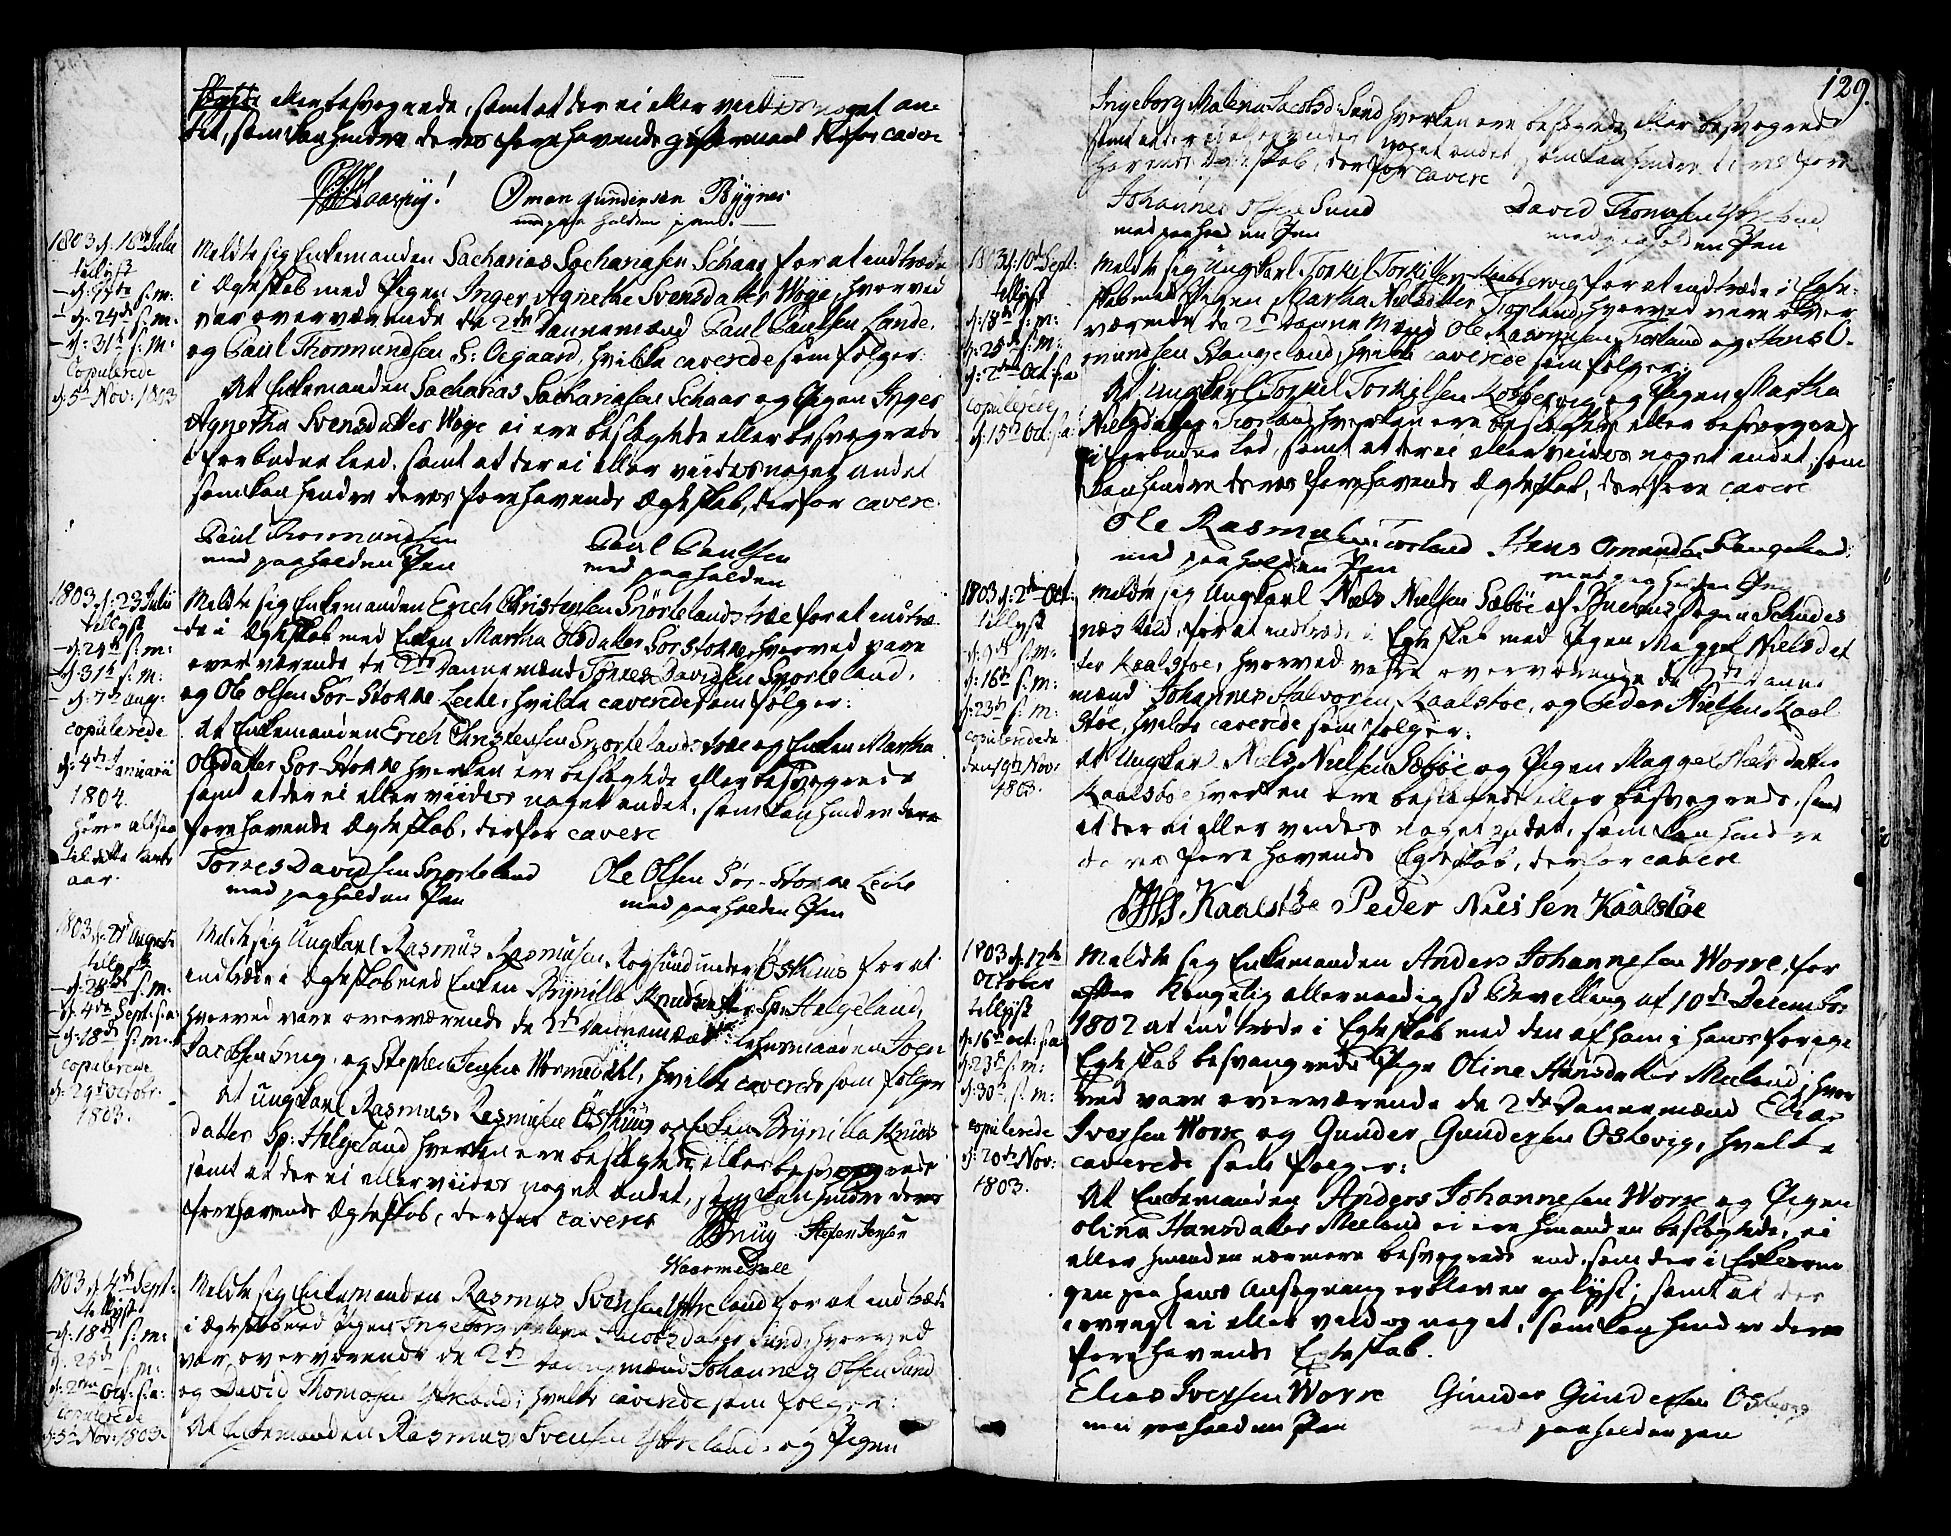 eller besvogrede, samt at der ei eller veides noget an-
det, som kan hindre deres forehavende giftermaal derfor cavere
Omon Gundersen Bygnes
med paa holden pen.
1803 d. 18de Julii
tillyst
- d. 17de s: m:
- d. 24de s: m:
- d. 31te s: m:
Copulerede
d. 5te Nov: 1803
Meldte sig Enkemanden Sacharias Sachariasen Schaar for at indtræde
i Ægteskab med Pigen Inger Agnethe Svensdatter Woge, hvorved
var overværende de 2de Dannemænd Paul Paulsen Lande,
og Paul Thormundsen S: Oegaard, hvilke caverede som følger:
At Enkemanden Sacharias Sachariasen Schaar og Pigen Inger
Agnetha Svensdatter Woge ei ere beslægtede eller besvogrede
i forbuden Leed, samt at der ei eller viides noget andet
som kan hindre deres forehavende Ægteskab, derfor cavere
Paul Thormundsen
med paaholden Pen
Paul Paulsen
med paaholden
1803 d. 23 Julii
tillyst
- d. 24de s: m:
- d. 31te s: m:
- d. 7de Aug:
copulerede
d. 4de Januarii
1804.
hører altsaa
til dette Kirke
aar.
Meldte sig Enkemanden Erich Christensen Snørtelandstræe for at indtræ-
de i Ægteskab med Enken Martha Olsdatter Sør Stokke, hvorved vare
overværende de 2de Dannemænd Tørres Davidsen Snorteland,
og Ole Olsen Sør-Stokke Leite, hvilke caverede som følger:
At Enkemanden Erich Christensen Snortelandstræe og Enken Martha
Olsdatter Sør-Stokke hverken ere beslægtede eller besvogrede
samt at der ei eller viides noget andet, som kan hindre deres
forehavende Ægteskab, derfor cavere
Torres Davidsen Snorteland
med paaholden Pen
Ole Olsen Sør-Stokke Leite
med paaholden Pen
1803 d. 21 Augusti
tillyst
- d. 28de s: m:
- d. 4de Sept: s: a:
- d. 18de s: m:
copulerede
d. 29de Octobr.
1803.
Meldte sig Ungkarl Rasmus Rasmusen Rogsund under Øskius for at
indtræde i Ægteskab med Enken Brynilla Knudsdatter Sp: Helgeland,
hvorved vare overværende de 2de Dannemænd: Lehnsmanden
Jacobsen Snüy, og Stephen Jensen Wormedahl, hvilke caverede som følger
At Ungkarl Rasmus Rasmusen Øskiug og Enken Brynilla Knuds
datter Sp: Helgeland hverken ere beslægtede eller besvogrede
samt at der ei eller viides noget andet, som kan hindre deres
forehavende Ægteskab, derfor caverer
Snüy Stefen Jensen
Waarmedall
1803 d. 4de Sept:
tillyst
- d. 18de s: m:
- d. 25de s: m:
d. 2den Oct: s: a:
Copulerede
d. 5te Nov: 1803.
Meldte sig Enkemanden Rasmus Svensen Ytreland for at indtræde
i Ægteskab med Pigen Ingeborg Malena Jacobsdatter Sund, hvorved
var overværende de 2de Dannemænd Johannes Olsen Sund
og David Thomasen Ytreland, hvilke caverede som følger:
At Enkemanden Rasmus Svensen Ytreland og Pigen
129.
Ingeborg Malena Jacobsd: Sund hverken ere beslægtede eller besvogrede
samt at der ei eller vides noget andet, som kan hindre deres fore
havende Ægteskab, derfor cavere
Johannes Olsen Sund
med paahol en Pen
David Thomasen Ytreland
med paahol en Pen
1803 d. 10de Sept:
tillyst
d. 18de s: m:
d. 25de s: m:
d. 2den Oct: s: a
copulerede
d. 15de Oct: s: a:
Meldte sig Ungkarl Torkil Torkilsen Kobbervig for at indtræde i Egte-
skab med Pigen Martha Nielsdatter Torland, hvorved vare over
værende de 2de Dannemænd Ole Rasmusen Torland og Hans O-
mundsen Stangeland, hvilke caverede som følger:
At Ungkarl Torkil Torkilsen Kobbervig og Pigen Martha
Nielsdatter Torland hverken ere beslægtede eller besvogrede
i forbuden Led, samt at der ei eller viides noget andet, som
kan hindre deres forehavende Ægteskab, derfore cavere
Ole Rasmusen Torland
med paaholden Pen
Hans Omundsen Stangeland
med paaholden Pen
1803 d. 2den Oct:
tillyst
d. 9de s: m:
d. 16de s: m:
d. 23de s: m:
copulerede
den 19de Nov:
1803.
Meldte sig Ungkarl Niels Nielsen Sæbøe af Buens Sogn Schudes
næs Præstegield, for at indtræde i Egteskab med Pigen Maggel Nielsdat
ter Kaalstøe, hvorved vare overværende de 2de Danne
mænd Johannes Halvorsen Kaalstøe, og Peder Nielsen Kaal
støe, hvilke caverede som følger:
At Ungkarl Niels Nielsen Sæbøe og Pigen Maggel Nielsdatter
Kaalstøe hverken ere beslægtede eller besvogrede, samt
at der ei eller vides noget andet, som kan hindre
deres forehavende Egteskab, derfor cavere
JHS. Kaalstøe Peder Nielsen Kaalstøe
1803 d. 12te
October
tillyst
d. 16de Oct: s: a
d. 23de s: m:
d. 30te s: m:
copulerede
d. 20de Nov:
1803.
Meldte sig Enkemanden Anders Johannesen Worre, for
efter Kongelig allernaadigst Bevilling af 10de Decembr:
1802 at indtræde i Egteskab med den af ham i hans forrige
Egteskab besvangrede Pige Oline Hansdatter Meeland, hvor
ved vare overværende de 2de Dannemænd Elias
Iversen Worre og Gunder Gundersen Ostevig, hvilke
caverede som følger:
At Enkemanden Anders Johannesen Worre og Pigen
Olina Hansdatter Meeland ei ere hinanden beslægtede, ei
eller hinanden nærmere besvogrede end, som der i Erklærin
gen paa hans Ansøgning er bleven oplyst; samt at der
iøvrigt ei eller veldog noget, som kan hindre deres
forehavende Egteskab.
Elias Iversen Worre
med paaholden Pen
Gunder Gundersen Ostevig
med paaholden pen